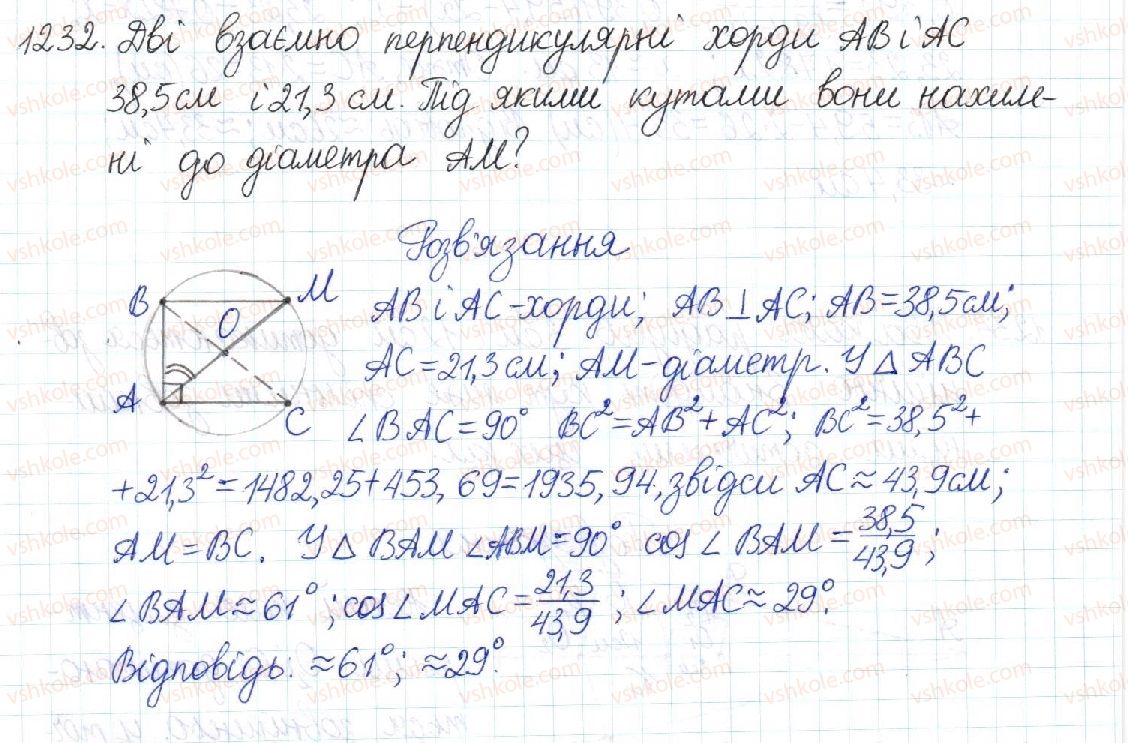 1232. Дві взаємно перпендикулярні хорди AB і AC
38,5 см і 21,3 см. Під якими кутами вони нахиле-
ні до діаметра AM?
Розв'язання
B M
O
A C
AB і AC - хорди; AB ⊥ AC; AB = 38,5 см;
AC = 21,3 см; AM - діаметр. У △ ABC
∠BAC = 90° BC² = AB² + AC²; BC² = 38,5² +
+ 21,3² = 1482,25 + 453,69 = 1935,94, звідси AC ≈ 43,9 см;
AM = BC. У △ BAM ∠ABM = 90° cos ∠ BAM = 38,5/43,9;
∠BAM ≈ 61°; cos ∠ MAC = 21,3/43,9; ∠MAC ≈ 29°.
Відповідь: ≈ 61°; ≈ 29°.
vshkole.com